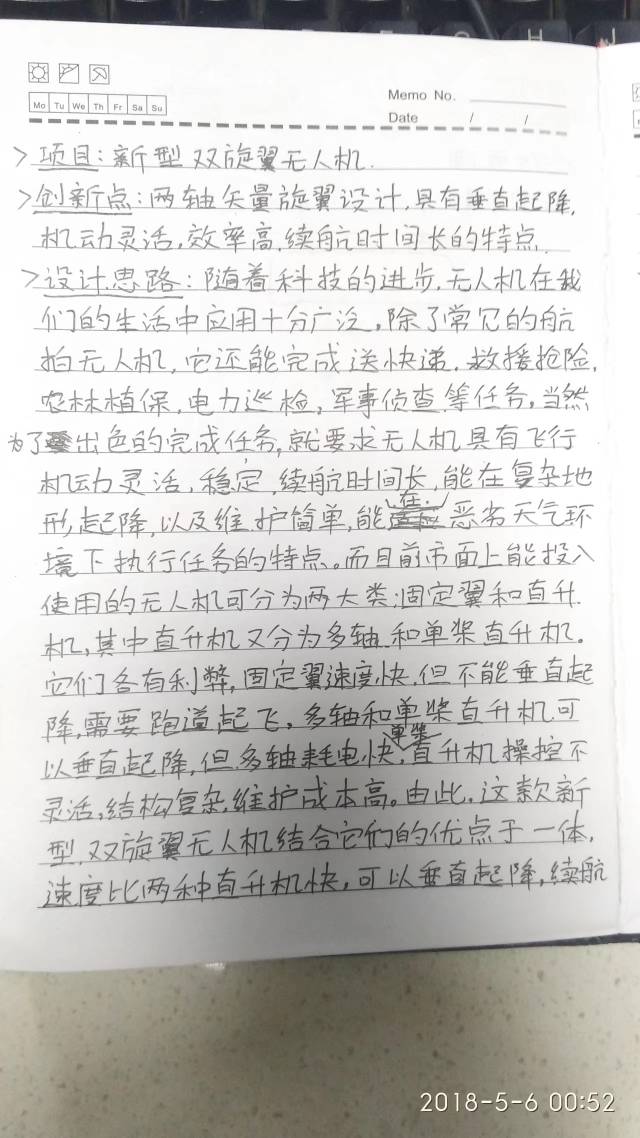 Mo Tu We Th Fr Sa Su
Memo No.
Date / /
>项目:新型双旋翼无人机.
>创新点:两轴矢量旋翼设计,具有垂直起降,
机动灵活,效率高,续航时间长的特点.
>设计思路:随着科技的进步,无人机在我
们的生活中应用十分广泛,除了常见的航
拍无人机,它还能完成送快递,救援抢险,
农林植保,电力巡检,军事侦查等任务,当然
为了出色的完成任务,就要求无人机具有飞行
机动灵活,稳定,续航时间长,能在复杂地
形起降,以及维护简单,能在恶劣天气环
境下执行任务的特点。而目前市面上能投入
使用的无人机可分为两大类:固定翼和直升
机,其中直升机又分为多轴和单桨直升机。
它们各有利弊,固定翼速度快,但不能垂直起
降,需要跑道起飞,多轴和单桨直升机可
以垂直起降,但多轴耗电快,单桨直升机操控不
灵活,结构复杂,维护成本高。由此,这款新
型双旋翼无人机结合它们的优点于一体,
速度比两种直升机快,可以垂直起降,续航
2018-5-6 00:52